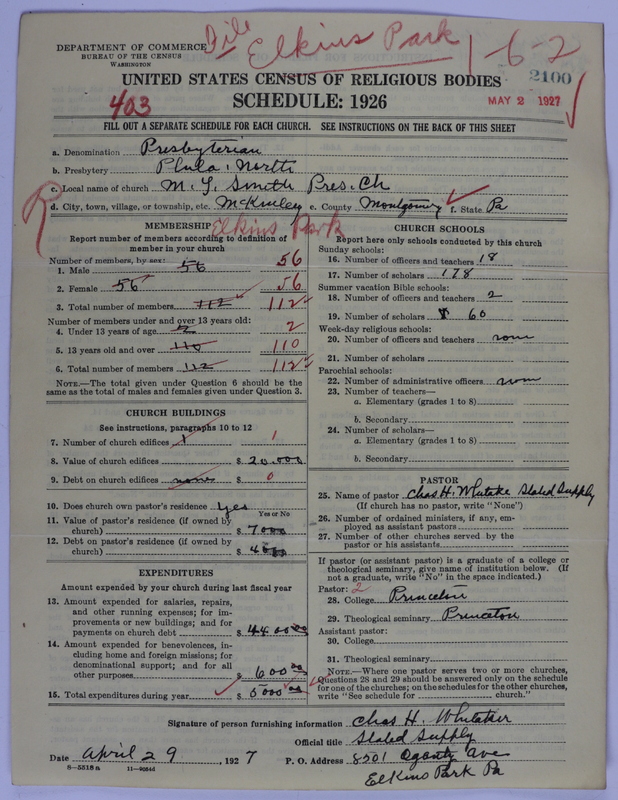 File Elkins Park 1-6-2
DEPARTMENT OF COMMERCE
BUREAU OF THE CENSUS
WASHINGTON
UNITED STATES CENSUS OF RELIGIOUS BODIES
2100
403
SCHEDULE: 1926
MAY 2 1927
FILL OUT A SEPARATE SCHEDULE FOR EACH CHURCH. SEE INSTRUCTIONS ON THE BACK OF THIS SHEET
a. Denomination Presbyterian
b. Presbytery Phila. North
c. Local name of church M. Y. Smith Pres. Ch
d. City, town, village, or township, etc. McKinley e. County Montgomery f. State Pa
Elkins Park
MEMBERSHIP
Report number of members according to definition of
member in your church
Number of members, by sex:
1. Male 56 56
2. Female 56 56
3. Total number of members 112 112
Number of members under and over 13 years old:
4. Under 13 years of age 2 2
5. 13 years old and over 110 110
6. Total number of members 112 112
NOTE.—The total given under Question 6 should be the
same as the total of males and females given under Question 3.
CHURCH BUILDINGS
See instructions, paragraphs 10 to 12
7. Number of church edifices 1 1
8. Value of church edifices $ 20.000
9. Debt on church edifices none $ 0
10. Does church own pastor's residence yes
Yes or No
11. Value of pastor's residence (if owned by
church) $ 7000
12. Debt on pastor's residence (if owned by
church) $
EXPENDITURES
Amount expended by your church during last fiscal year
13. Amount expended for salaries, repairs,
and other running expenses; for im-
provements or new buildings; and for
payments on church debt $ 4400.00
14. Amount expended for benevolences, in-
cluding home and foreign missions; for
denominational support; and for all
other purposes 600.00
15. Total expenditures during year $ 5000.00
CHURCH SCHOOLS
Report here only schools conducted by this church
Sunday schools:
16. Number of officers and teachers 18
17. Number of scholars 178
Summer vacation Bible schools:
18. Number of officers and teachers 2
19. Number of scholars 60
Week-day religious schools:
20. Number of officers and teachers none
21. Number of scholars
Parochial schools:
22. Number of administrative officers none
23. Number of teachers—
a. Elementary (grades 1 to 8)
b. Secondary
24. Number of scholars—
a. Elementary (grades 1 to 8)
b. Secondary
PASTOR
25. Name of pastor Chas H. Whitake Stated Supply
(If church has no pastor, write "None")
26. Number of ordained ministers, if any, em-
ployed as assistant pastors
27. Number of other churches served by the
pastor or his assistants
If pastor (or assistant pastor) is a graduate of a college or
theological seminary, give name of institution below. (If
not a graduate, write "No" in the space indicated.)
Pastor: 2
28. College Princeton
29. Theological seminary Princeton
Assistant pastor:
30. College
31. Theological seminary
NOTE.—Where one pastor serves two or more churches,
Questions 28 and 29 should be answered only on the schedule
for one of the churches; on the schedules for the other churches,
write "See schedule for church."
Signature of person furnishing information Chas H. Whitaker
Official title Stated Supply
Date April 29, 1927 P. O. Address 8201 Ave
8-5518a
Elkins Park Pa